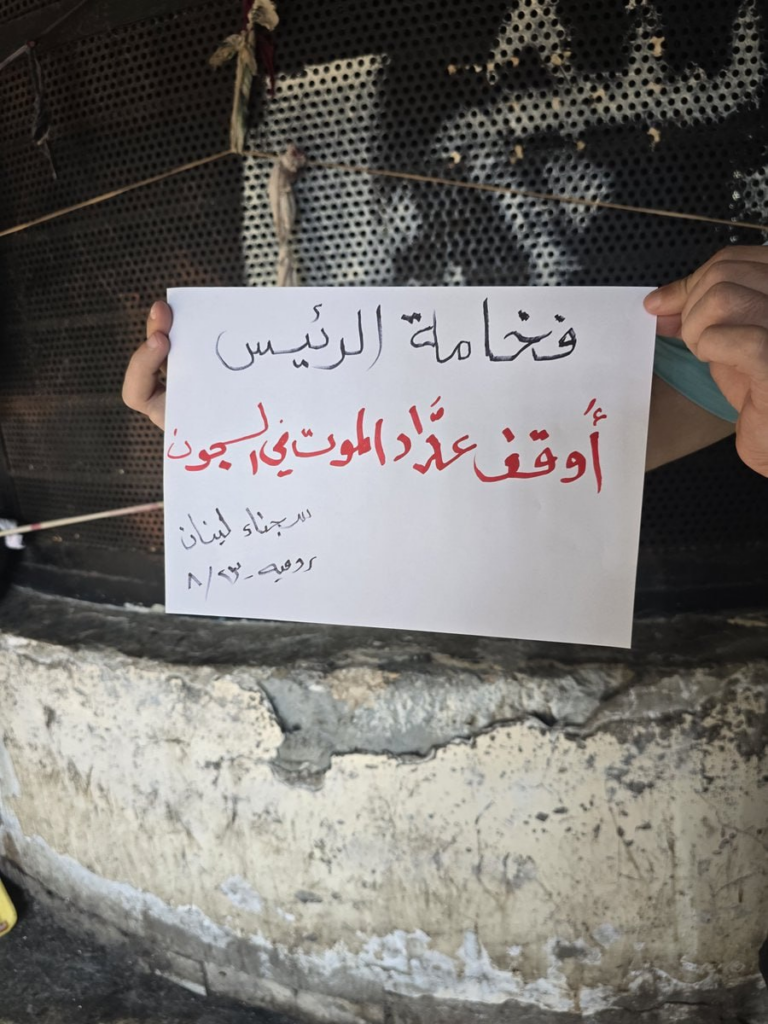 فخامة الرئيس
أوقف عدَّاد الموت في السجون
سجناء لبنان
رومية - ٢٣/٨